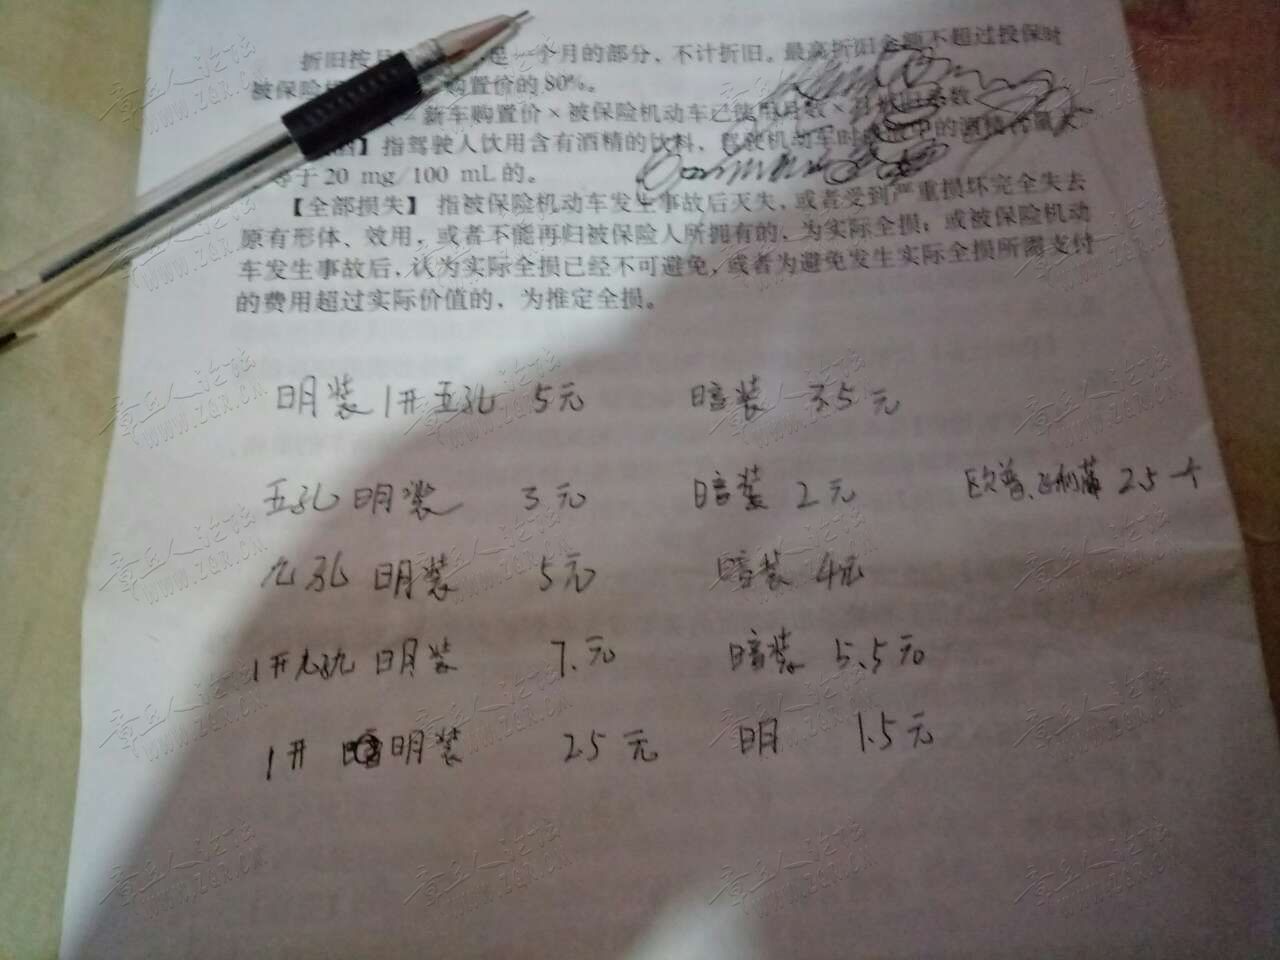 折旧按月 一个月的部分，不计折旧。最高折旧金额不超过投保时
被保险 购置价的80%。
=新车购置价×被保险机动车已使用月数×月折旧系数
】指驾驶人饮用含有酒精的饮料，驾驶机动车时 中的酒精含量大
等于20 mg/100 mL的。
【全部损失】指被保险机动车发生事故后灭失，或者受到严重损坏完全失去
原有形体、效用，或者不能再归被保险人所拥有的，为实际全损；或被保险机动
车发生事故后，认为实际全损已经不可避免，或者为避免发生实际全损所需支付
的费用超过实际价值的，为推定全损。
明装1开五孔 5元 暗装 3.5元
五孔明装 3元 暗装 2元 欧普、 2.5一个
九孔 明装 5元 暗装 4元
1开九孔 明装 7.元 暗装 5.5元
1开 明装 2.5元 明 1.5元
章丘人论坛
WWW.ZQR.CN